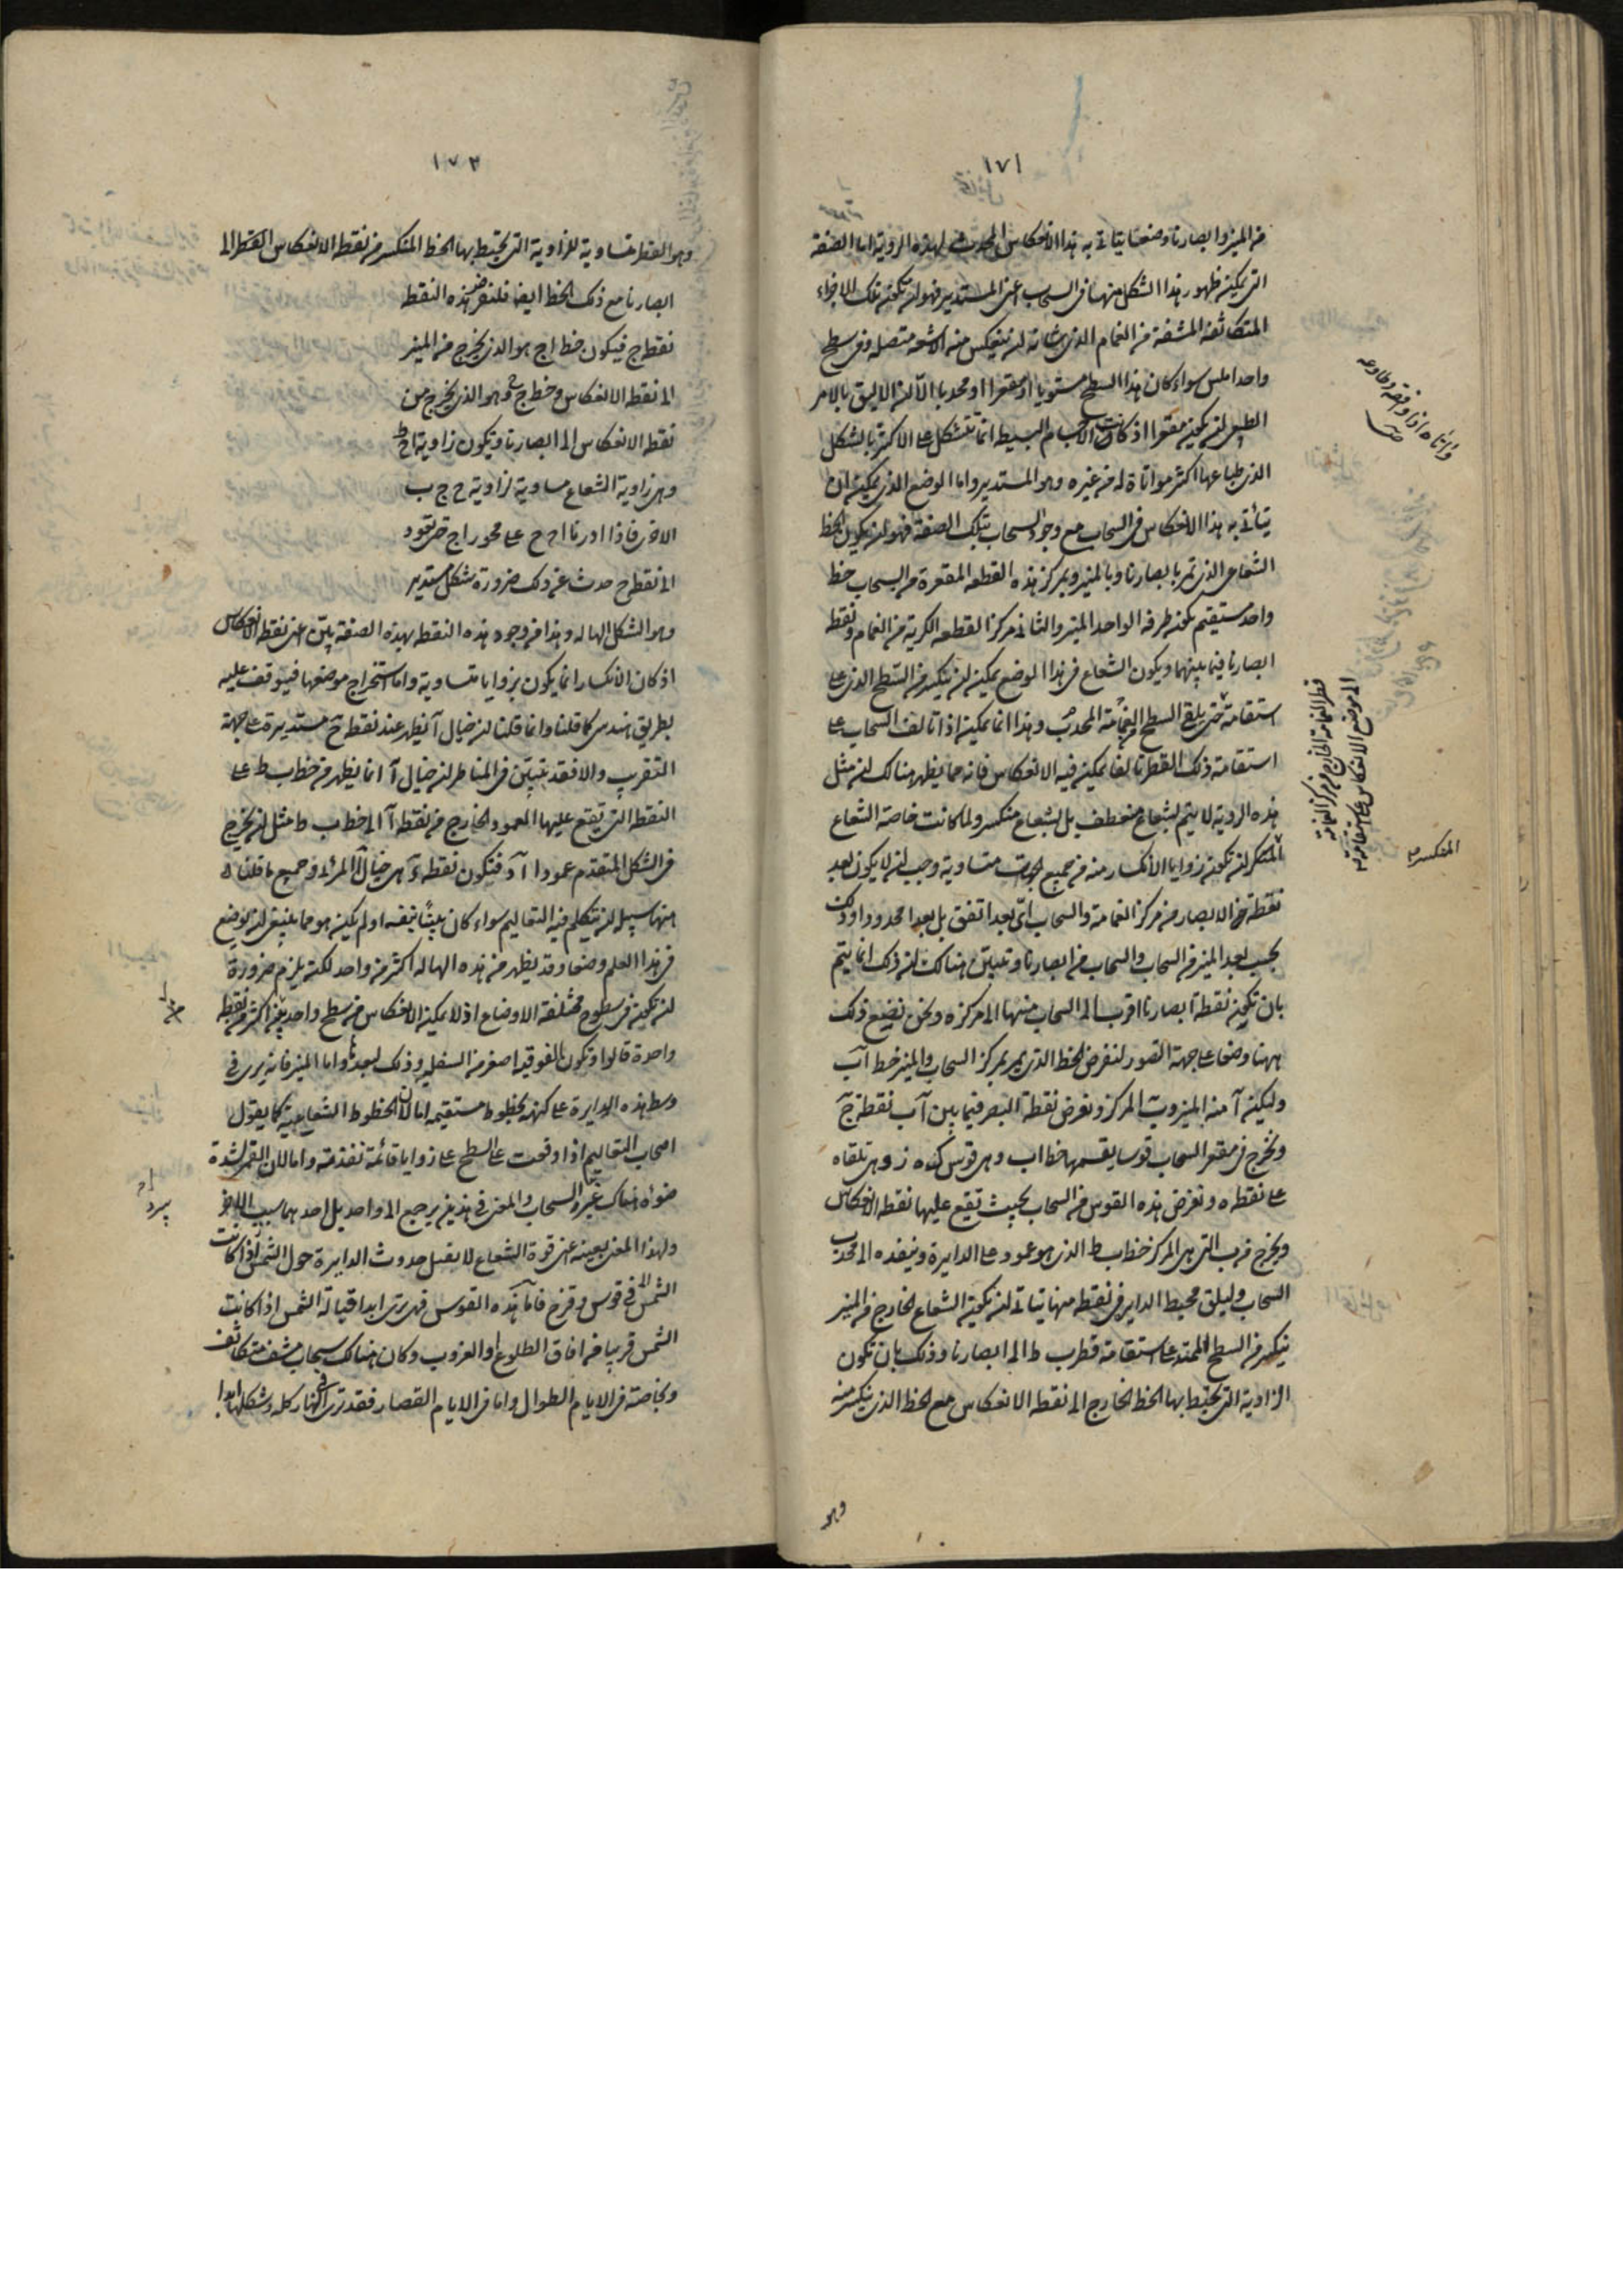 ١٧١
من المنير وابصارنا وضعا يتاتى به هذا الانعكاس المحدث لهذه الروية اما الصفة
التى يمكن ظهور هذا الشكل منها فى السحاب اعنى المستدير فهو ان تكون تلك الاجزاء
المتكاثفة المشفة من الغمام الذى شانه ان ينعكس منه الاشعة متصلة وفى سطح
واحد املس سواء كان هذا السطح مستويا او مقعرا او محدبا الا ان الاليق بالامر
الطبيعى ان يكون مقعرا اذ كانت الاجسام البسيط انما تتشكل على الاكثر بالشكل
الذى طباعها اكثر مواتاة له من غيره وهو المستدير واما الوضع الذى يمكن ان
يتأتى به هذا الانعكاس فى السحاب مع وجود السحاب بتلك الصفة فهو ان يكون الخط
الشعاعى الذى تمر بابصارنا وبالمنير وبمركز هذه القطعه المقعرة من السحاب خط
واحد مستقيم يكون طرفه الواحد المنير والثانى مركز القطعه الكرية من الغمام ونقطة
ابصارنا فيما بينهما ويكون الشعاع فى هذا الوضع يمكن ان ينكسر من السطح الذى على
استقامة حتى يلقى السطح الغمامة المحدب وهذا انما يمكن اذا تالف السحاب على
استقامة ذلك القطر تالفا يمكن فيه الانعكاس فانه مما يظهر هنالك ان مثل
هذه الروية لا يتم لشعاع منعطف بل لشعاع منكسر ولما كانت خاصة الشعاع
المنكسر ان تكون زوايا الانكسار منه من جميع الجهات متساوية وجب ان لا يكون بعد
نقطة الابصار من مركز الغمامة والسحاب اى بعد اتفق بل بعدا محدودا وذلك
بحسب بعد المنير من السحاب والسحاب من ابصارنا وتبين هنالك ان ذلك انما يتم
بان تكون نقطة ابصارنا اقرب الى السحاب منها الى مركزه ونحن نضع ذلك
ههنا وضعا على جهة التصور لنفرض الخط الذى يمر بمركز السحاب والمنير خط آب
وليكن آ منه المنير وب المركز ونفرض نقطة البصر فيما بين آب نقطة ج
ونخرج فى مقعر السحاب قوسا يقسمها خط اب وهى قوس ده ز وهى تلقاه
على نقطة ه ونفرض هذه القوس من السحاب بحيث تقع عليها نقطة الانعكاس
ويخرج من ب التى هى المركز خط ب ط الذى هو عمود على الدايرة وينفذه الى محدب
السحاب وليلق محيط الداير فى نقطة منها يتاتى ان يكون الشعاع الخارج من المنير
ينكسر من السطح الممتد على استقامة قطر ب ط الى ابصارنا وذلك بان تكون
الزاوية التى يحيط بها الخط الخارج الى نقطة الانعكاس مع الخط الذى ينكسر منه
وهو
واتاه اذا وافقه وطاوعه
قطر الغمامة الخارج من مركز الغمامة
الى موضع الانعكاس على استقامة
المنكسر
١٧٣
وهو القطر متساوية للزاوية التى يحيط بها الخط المنكسر من نقطة الانعكاس القطر الى
ابصارنا مع ذلك الخط ايضا فلنفرض هذه النقطة
نقطة ح فيكون خط اح هو الذى يخرج من المنير
الى نقطة الانعكاس وخط ح ج هو الذى يخرج من
نقطة الانعكاس الى ابصارنا وتكون زاوية اح ط
وهى زاوية الشعاع مساوية لزاوية ج ح ب
الاخرى فاذا ادرنا اح ج على محور اج حتى تعود
الى نقطة ح حدث عن ذلك ضرورة شكل مستدير
وهو الشكل الهاله وهذا من وجود هذه النقطة بهذه الصفة بين اعنى نقطة الانعكاس
اذ كان الانكسار انما يكون بزوايا متساوية واما استخراج موضعها فيوقف عليه
بطريق هندسى كما قلنا وانما قلنا ان خيال آ يظهر عند نقطة ح مستديرة على جهة
التقريب والا فقد تبين فى المناظر ان خيال آ انما يظهر من خط ب ط على
النقطة التى يقع عليها العمود الخارج من نقطة آ الى خط ب ط مثل ان نخرج
فى الشكل المتقدم عمود ا آد فتكون نقطة د هى خيال آ المرئى وجميع ما قلناه
منها سبيل ان يتكلم فيه التعاليم سواء كان بينا بنفسه او لم يكن هو مما ينبغى ان يوضع
فى هذا العلم وضعا وقد يظهر من هذه الهالة اكثر من واحد لكنه يلزم ضرورة
ان تكون فى سطوح مختلفة الاوضاع اذ لا يمكن الانعكاس من سطح واحد من اكثر من نقطة
واحدة قالوا وتكون الفوقية اصغر من السفلية وذلك لبعدها واما المنير فانه يرى فى
وسط هذه الدايرة على كنهه بخطوط مستقيمه اما لان الخطوط الشعاعية كما يقول
اصحاب التعاليم اذا وقعت على السطح على زوايا قائمة نفذته واما لان القمر لشدة
ضوئه هناك غير السحاب والمعنى فى هذين يرجع الى واحد بل احدهما سبب الاخر
ولهذا المعنى بعينه اعنى قوة الشعاع لا يقبل حدوث الدايرة حول الشمس اذا كانت
الشمس فى قوس وقزح فاما هذه القوس فهى ترى ابدا قبالة الشمس اذا كانت
الشمس قريبا من افاق الطلوع او الغروب وكان هنالك سحاب مشف متكاثف
وبخاصة فى الايام الطوال واما فى الايام القصار فقد ترى فى النهار كله وشكلها ابدا